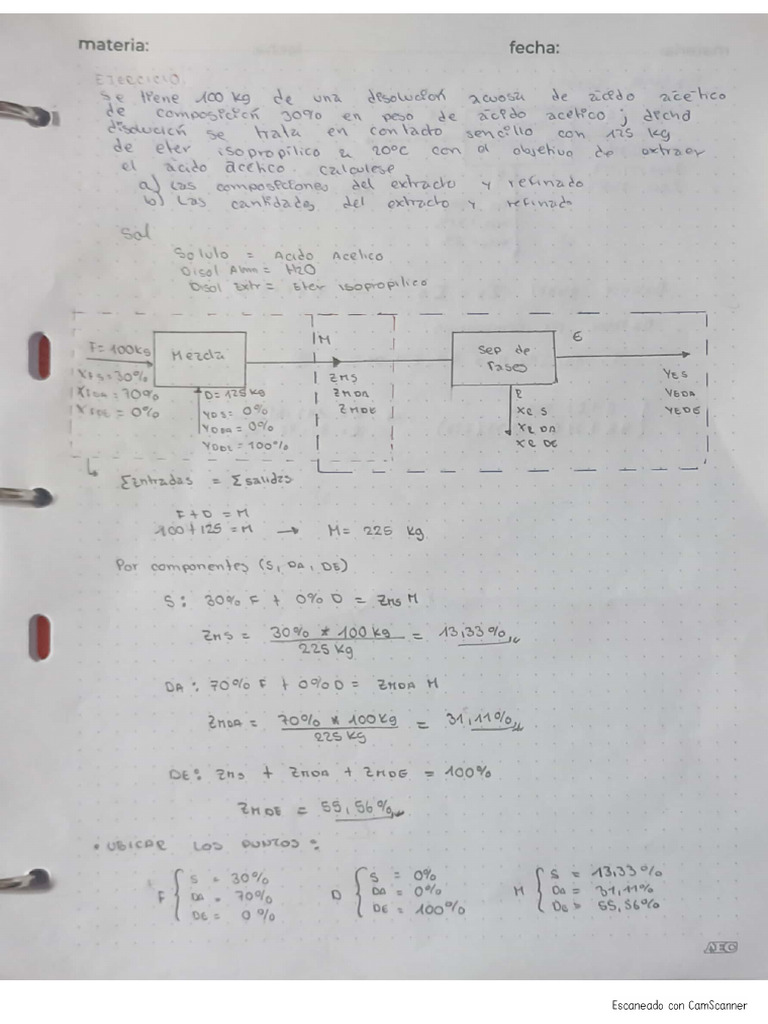 materia: fecha:
EJERCICIO
Se tiene 100 kg de una disolución acuosa de ácido acético
de composición 30% en peso de ácido acético ; dicha
disolución se trata en contacto sencillo con 125 kg
de eter isopropilico a 20°C con el objetivo de extraer
el acido acetico. calculese
a) Las composiciones del extracto y refinado
b) Las cantidades del extracto y refinado
Sol
Soluto = Acido Acetico
Disol Alim = H2O
Disol Extr = Eter isopropilico
F= 100kg
XFS = 30%
XFDA = 70%
XFDE = 0%
Mezcla
D= 125 kg
YDS = 0%
YDDA = 0%
YDDE = 100%
M
ZMS
ZMDA
ZMDE
Sep de
fases
E
YES
YEDA
YEDE
R
XR S
XR DA
XR DE
Σentradas = Σsalidas
F + D = M
100 + 125 = M → M= 225 kg
Por componentes (S, DA, DE)
S: 30% F + 0% D = ZMS M
ZMS = 30% * 100 kg / 225 kg = 13,33 %
DA : 70% F + 0% D = ZMDA M
ZMDA = 70% * 100kg / 225 kg = 31,11%
DE: ZMS + ZMDA + ZMDE = 100%
ZMDE = 55,56%
• UBICAR LOS PUNTOS :
F { S = 30% DA = 70% DE = 0 %
D { S = 0% DA = 0% DE = 100%
M { S = 13,33 % DA = 31,11% DE = 55,56%
AEC
Escaneado con CamScanner